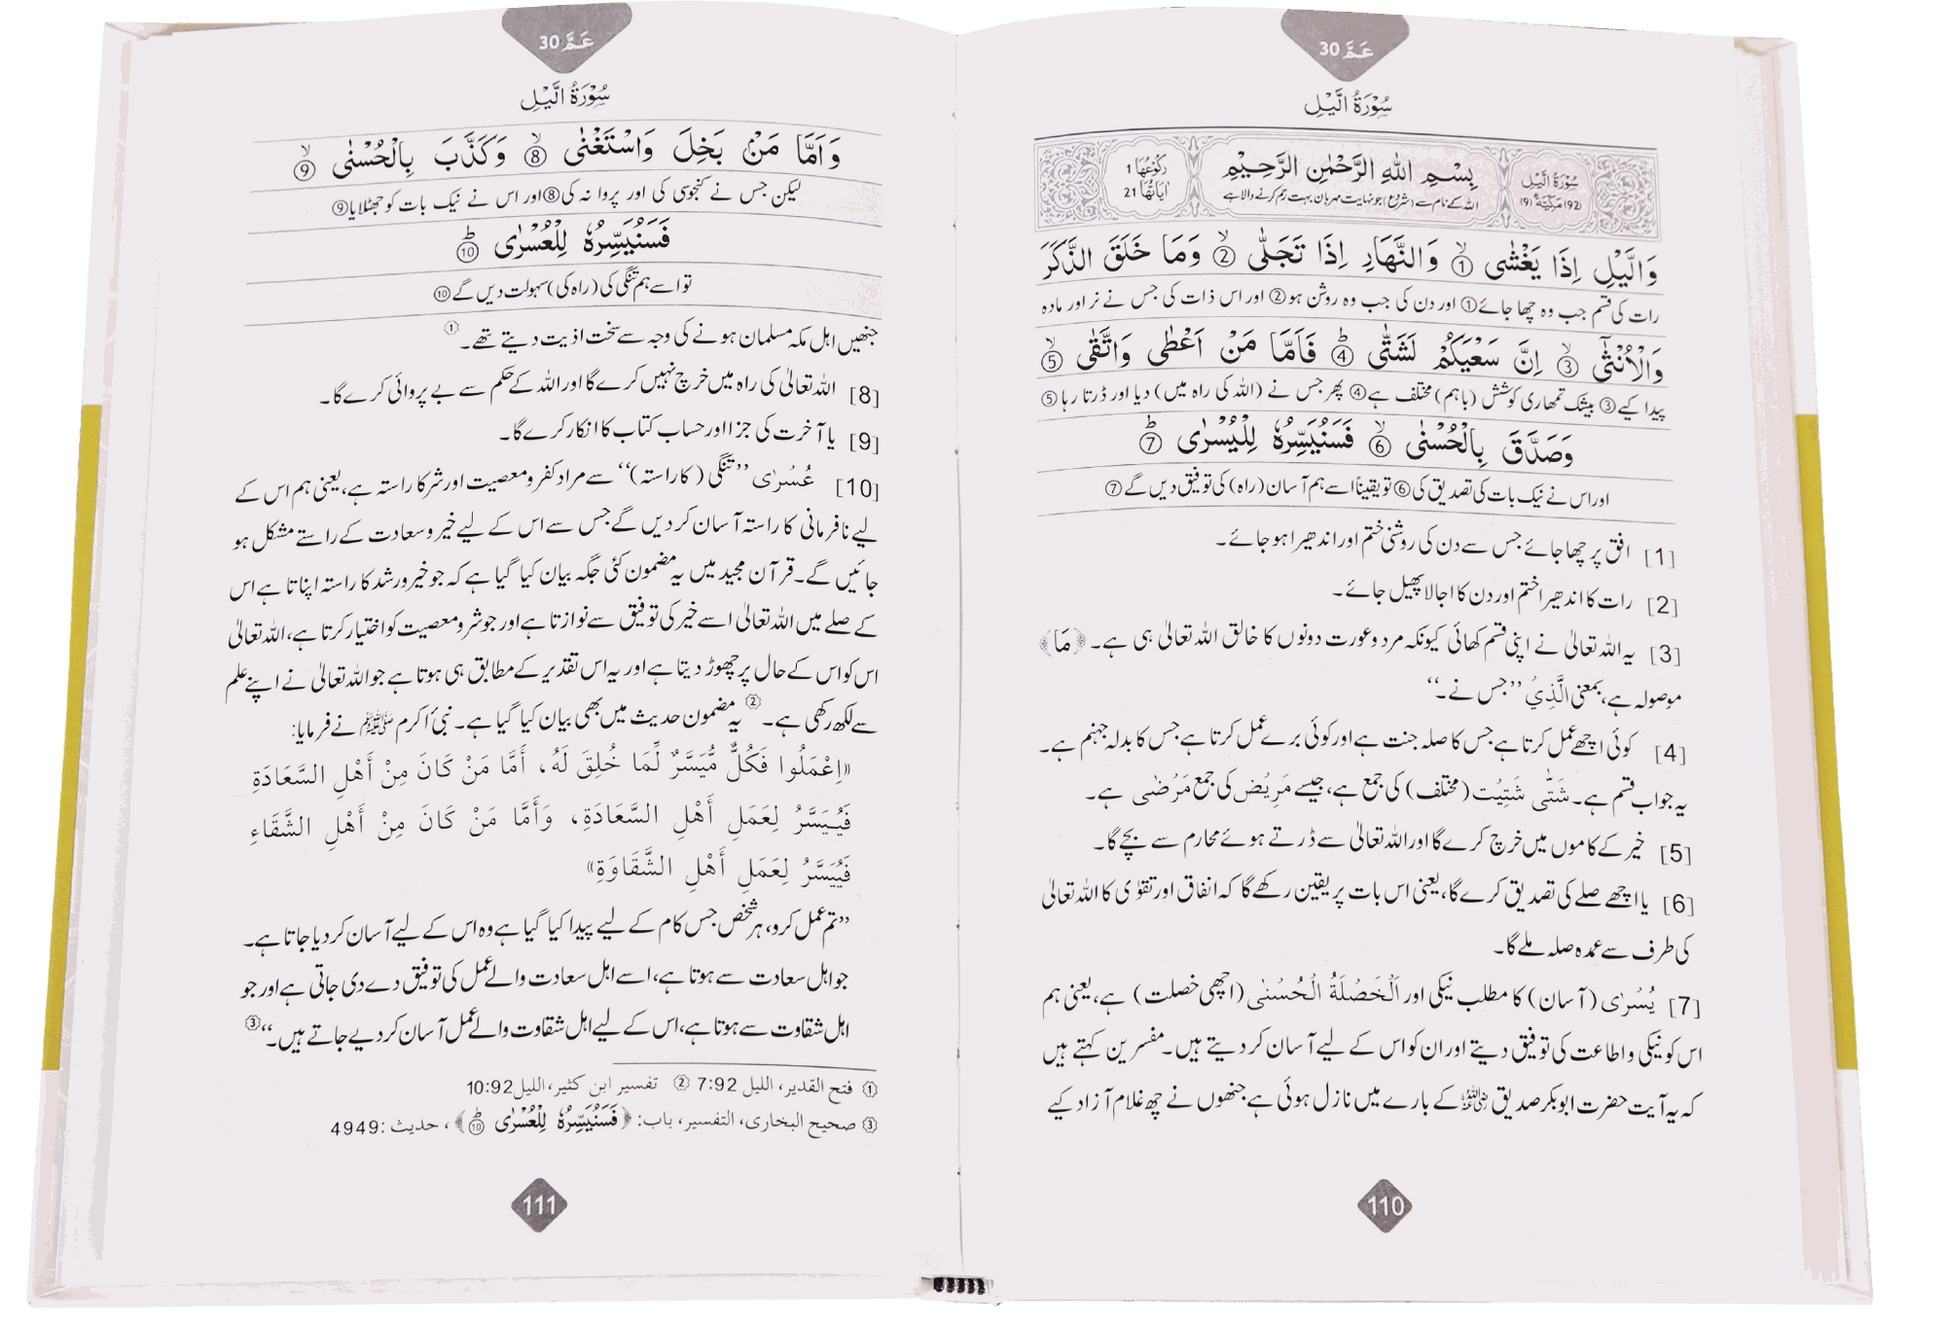 عَمَّ 30
سُوْرَةُ الَّيْلِ
سُوْرَةُ الَّيْلِ
(92) مَكِّيَّةٌ (9)
بِسْمِ اللّٰهِ الرَّحْمٰنِ الرَّحِيْمِ
اللہ کے نام سے (شروع) جو نہایت مہربان بہت رحم کرنے والا ہے
رُكُوْعُهَا 1
اٰيَاتُهَا 21
وَالَّيْلِ اِذَا يَغْشٰى ① وَالنَّهَارِ اِذَا تَجَلّٰى ② وَمَا خَلَقَ الذَّكَرَ
رات کی قسم جب وہ چھا جائے① اور دن کی جب وہ روشن ہو② اور اس ذات کی جس نے نر اور مادہ
وَالْاُنْثٰٓى ③ اِنَّ سَعْيَكُمْ لَشَتّٰى ④ فَاَمَّا مَنْ اَعْطٰى وَاتَّقٰى ⑤
پیدا کیے③ بیشک تمھاری کوشش (باہم) مختلف ہے④ پھر جس نے (اللہ کی راہ میں) دیا اور ڈرتا رہا⑤
وَصَدَّقَ بِالْحُسْنٰى ⑥ فَسَنُيَسِّرُهٗ لِلْيُسْرٰى ⑦
اور اس نے نیک بات کی تصدیق کی⑥ تو یقیناً اسے ہم آسان (راہ) کی توفیق دیں گے⑦
[1] افق پر چھا جائے جس سے دن کی روشنی ختم اور اندھیرا ہو جائے۔
[2] رات کا اندھیرا ختم اور دن کا اجالا پھیل جائے۔
[3] یہ اللہ تعالیٰ نے اپنی قسم کھائی کیونکہ مرد و عورت دونوں کا خالق اللہ تعالیٰ ہی ہے۔ ﴿مَا﴾
موصولہ ہے، بمعنی الَّذِيْ ’’جس نے۔‘‘
[4] کوئی اچھے عمل کرتا ہے جس کا صلہ جنت ہے اور کوئی برے عمل کرتا ہے جس کا بدلہ جہنم ہے۔
یہ جواب قسم ہے۔ شَتّٰى شَتِيْت (مختلف) کی جمع ہے، جیسے مَرِيْض کی جمع مَرْضٰى ہے۔
[5] خیر کے کاموں میں خرچ کرے گا اور اللہ تعالیٰ سے ڈرتے ہوئے محارم سے بچے گا۔
[6] یا اچھے صلے کی تصدیق کرے گا، یعنی اس بات پر یقین رکھے گا کہ انفاق اور تقویٰ کا اللہ تعالیٰ
کی طرف سے عمدہ صلہ ملے گا۔
[7] يُسْرٰى (آسان) کا مطلب نیکی اور اَلْخَصْلَةُ الْحُسْنٰى (اچھی خصلت) ہے، یعنی ہم
اس کو نیکی و اطاعت کی توفیق دیتے اور ان کو اس کے لیے آسان کر دیتے ہیں۔ مفسرین کہتے ہیں
کہ یہ آیت حضرت ابوبکر صدیق رضی اللہ عنہ کے بارے میں نازل ہوئی ہے جنھوں نے چھ غلام آزاد کیے
110
عَمَّ 30
سُوْرَةُ الَّيْلِ
وَاَمَّا مَنْۢ بَخِلَ وَاسْتَغْنٰى ⑧ وَكَذَّبَ بِالْحُسْنٰى ⑨
لیکن جس نے کنجوسی کی اور پروا نہ کی⑧ اور اس نے نیک بات کو جھٹلایا⑨
فَسَنُيَسِّرُهٗ لِلْعُسْرٰى ⑩
تو اسے ہم تنگی کی (راہ کی) سہولت دیں گے⑩
جنھیں اہل مکہ مسلمان ہونے کی وجہ سے سخت اذیت دیتے تھے۔①
[8] اللہ تعالیٰ کی راہ میں خرچ نہیں کرے گا اور اللہ کے حکم سے بے پروائی کرے گا۔
[9] یا آخرت کی جزا اور حساب کتاب کا انکار کرے گا۔
[10] عُسْرٰى ’’تنگی (کا راستہ)‘‘ سے مراد کفر و معصیت اور شر کا راستہ ہے، یعنی ہم اس کے
لیے نافرمانی کا راستہ آسان کر دیں گے جس سے اس کے لیے خیر و سعادت کے راستے مشکل ہو
جائیں گے۔ قرآن مجید میں یہ مضمون کئی جگہ بیان کیا گیا ہے کہ جو خیر و رشد کا راستہ اپناتا ہے اس
کے صلے میں اللہ تعالیٰ اسے خیر کی توفیق سے نوازتا ہے اور جو شر و معصیت کو اختیار کرتا ہے، اللہ تعالیٰ
اس کو اس کے حال پر چھوڑ دیتا ہے اور یہ اس تقدیر کے مطابق ہی ہوتا ہے جو اللہ تعالیٰ نے اپنے علم
سے لکھ رکھی ہے۔② یہ مضمون حدیث میں بھی بیان کیا گیا ہے۔ نبی اکرم ﷺ نے فرمایا:
«اِعْمَلُوا فَكُلٌّ مُّيَسَّرٌ لِّمَا خُلِقَ لَهُ، أَمَّا مَنْ كَانَ مِنْ أَهْلِ السَّعَادَةِ
فَيُيَسَّرُ لِعَمَلِ أَهْلِ السَّعَادَةِ، وَأَمَّا مَنْ كَانَ مِنْ أَهْلِ الشَّقَاءِ
فَيُيَسَّرُ لِعَمَلِ أَهْلِ الشَّقَاوَةِ»
’’تم عمل کرو، ہر شخص جس کام کے لیے پیدا کیا گیا ہے وہ اس کے لیے آسان کر دیا جاتا ہے۔
جو اہل سعادت سے ہوتا ہے، اسے اہل سعادت والے عمل کی توفیق دے دی جاتی ہے اور جو
اہل شقاوت سے ہوتا ہے، اس کے لیے اہل شقاوت والے عمل آسان کر دیے جاتے ہیں۔‘‘③
① فتح القدير، الليل 7:92 ② تفسير ابن كثير، الليل 10:92
③ صحيح البخاری، التفسير، باب: ﴿فَسَنُيَسِّرُهٗ لِلْعُسْرٰى ⑩﴾، حديث: 4949
111